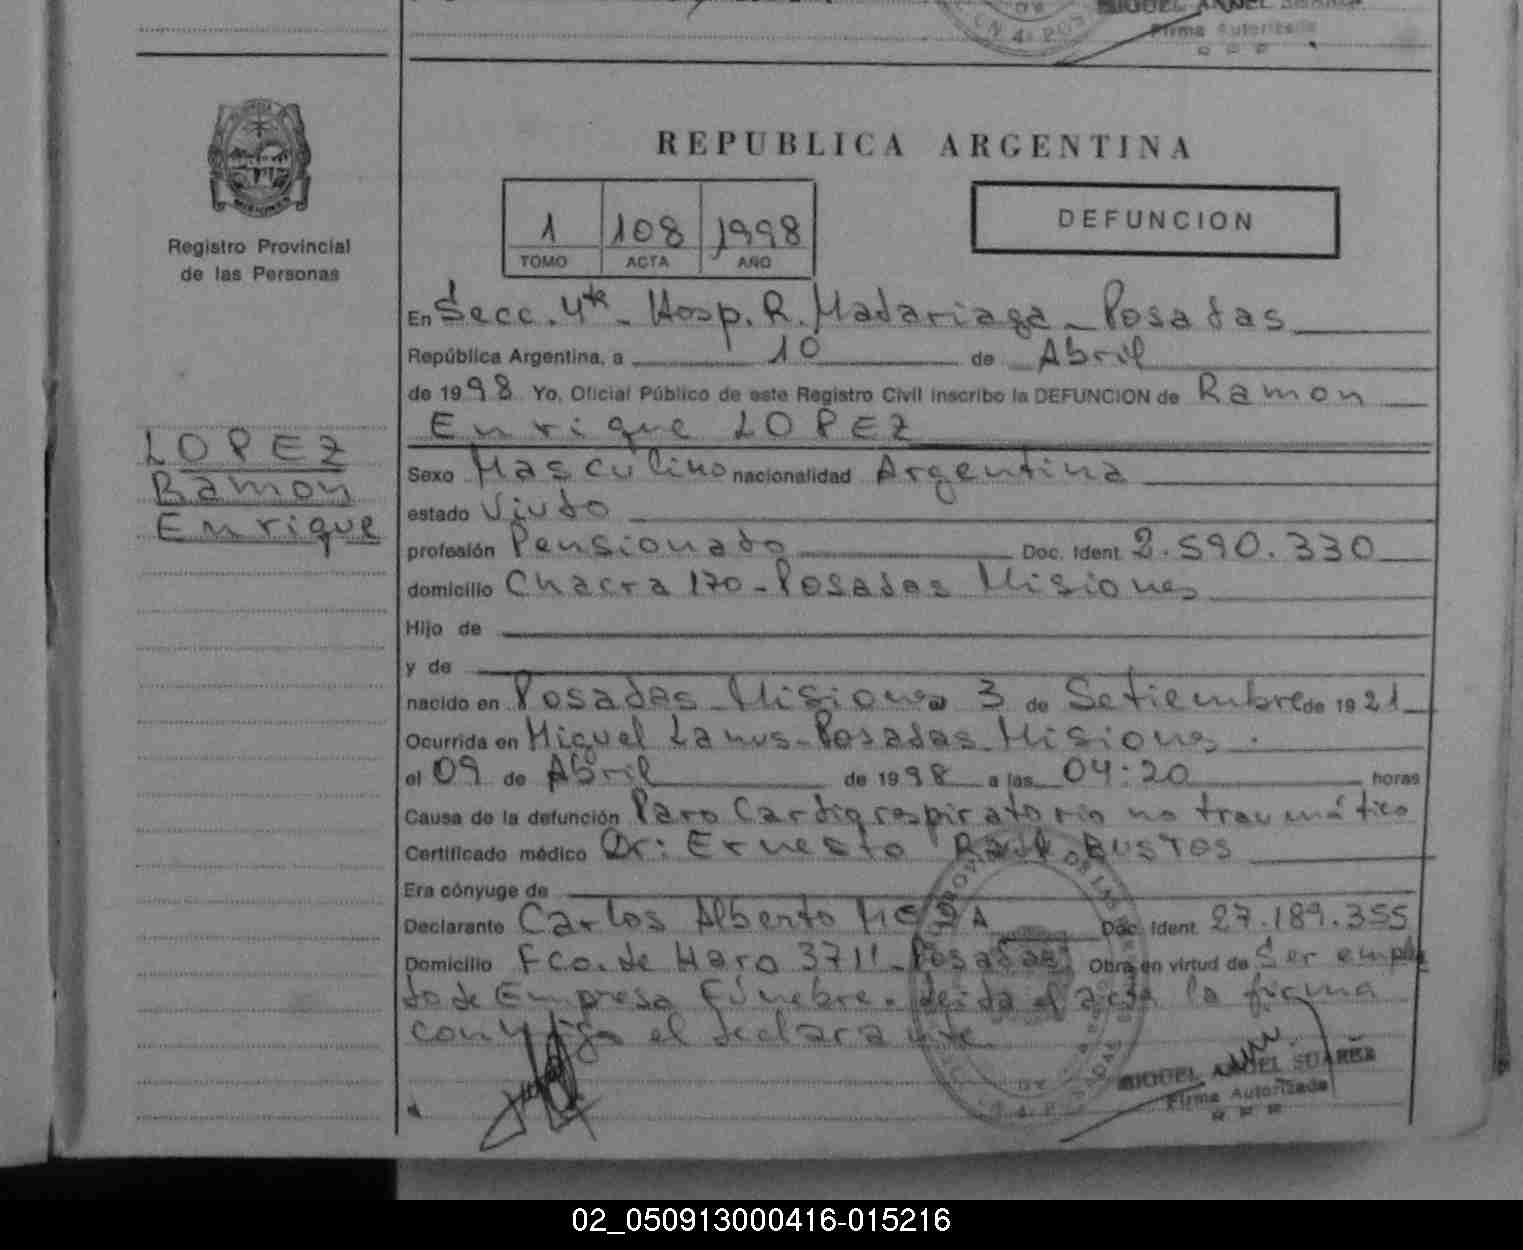 MIGUEL ANGEL SUAREZ
Firma Autorizada
R P P
REPUBLICA ARGENTINA
MISIONES
Registro Provincial
de las Personas
1 108 1998
TOMO ACTA AÑO
DEFUNCION
En Secc. 4ta - Hosp. R. Madariaga - Posadas
República Argentina, a 10 de Abril
de 1998 Yo, Oficial Público de este Registro Civil inscribo la DEFUNCION de Ramon
Enrique LOPEZ
LOPEZ
Ramon
Enrique
Sexo Masculino nacionalidad Argentina
estado Viudo
profesión Pensionado Doc. Ident. 2.590.330
domicilio Chacra 170 - Posadas Misiones
Hijo de
y de
nacido en Posadas Misiones 3 de Setiembre de 1921
Ocurrida en Miguel Lanus - Posadas Misiones.
el 09 de Abril de 1998 a las 04:20 horas
Causa de la defunción Paro Cardiorespiratorio no traumático
Certificado médico Dr: Ernesto Raul BUSTOS
Era cónyuge de
Declarante Carlos Alberto Doc. Ident. 27.189.355
Domicilio Fco. de Haro 3711 - Posadas Obra en virtud de Ser emplea
do de Empresa Fúnebre. leida el acta la firma
conmigo el declarante
MIGUEL ANGEL SUAREZ
Firma Autorizada
R P P
02_050913000416-015216